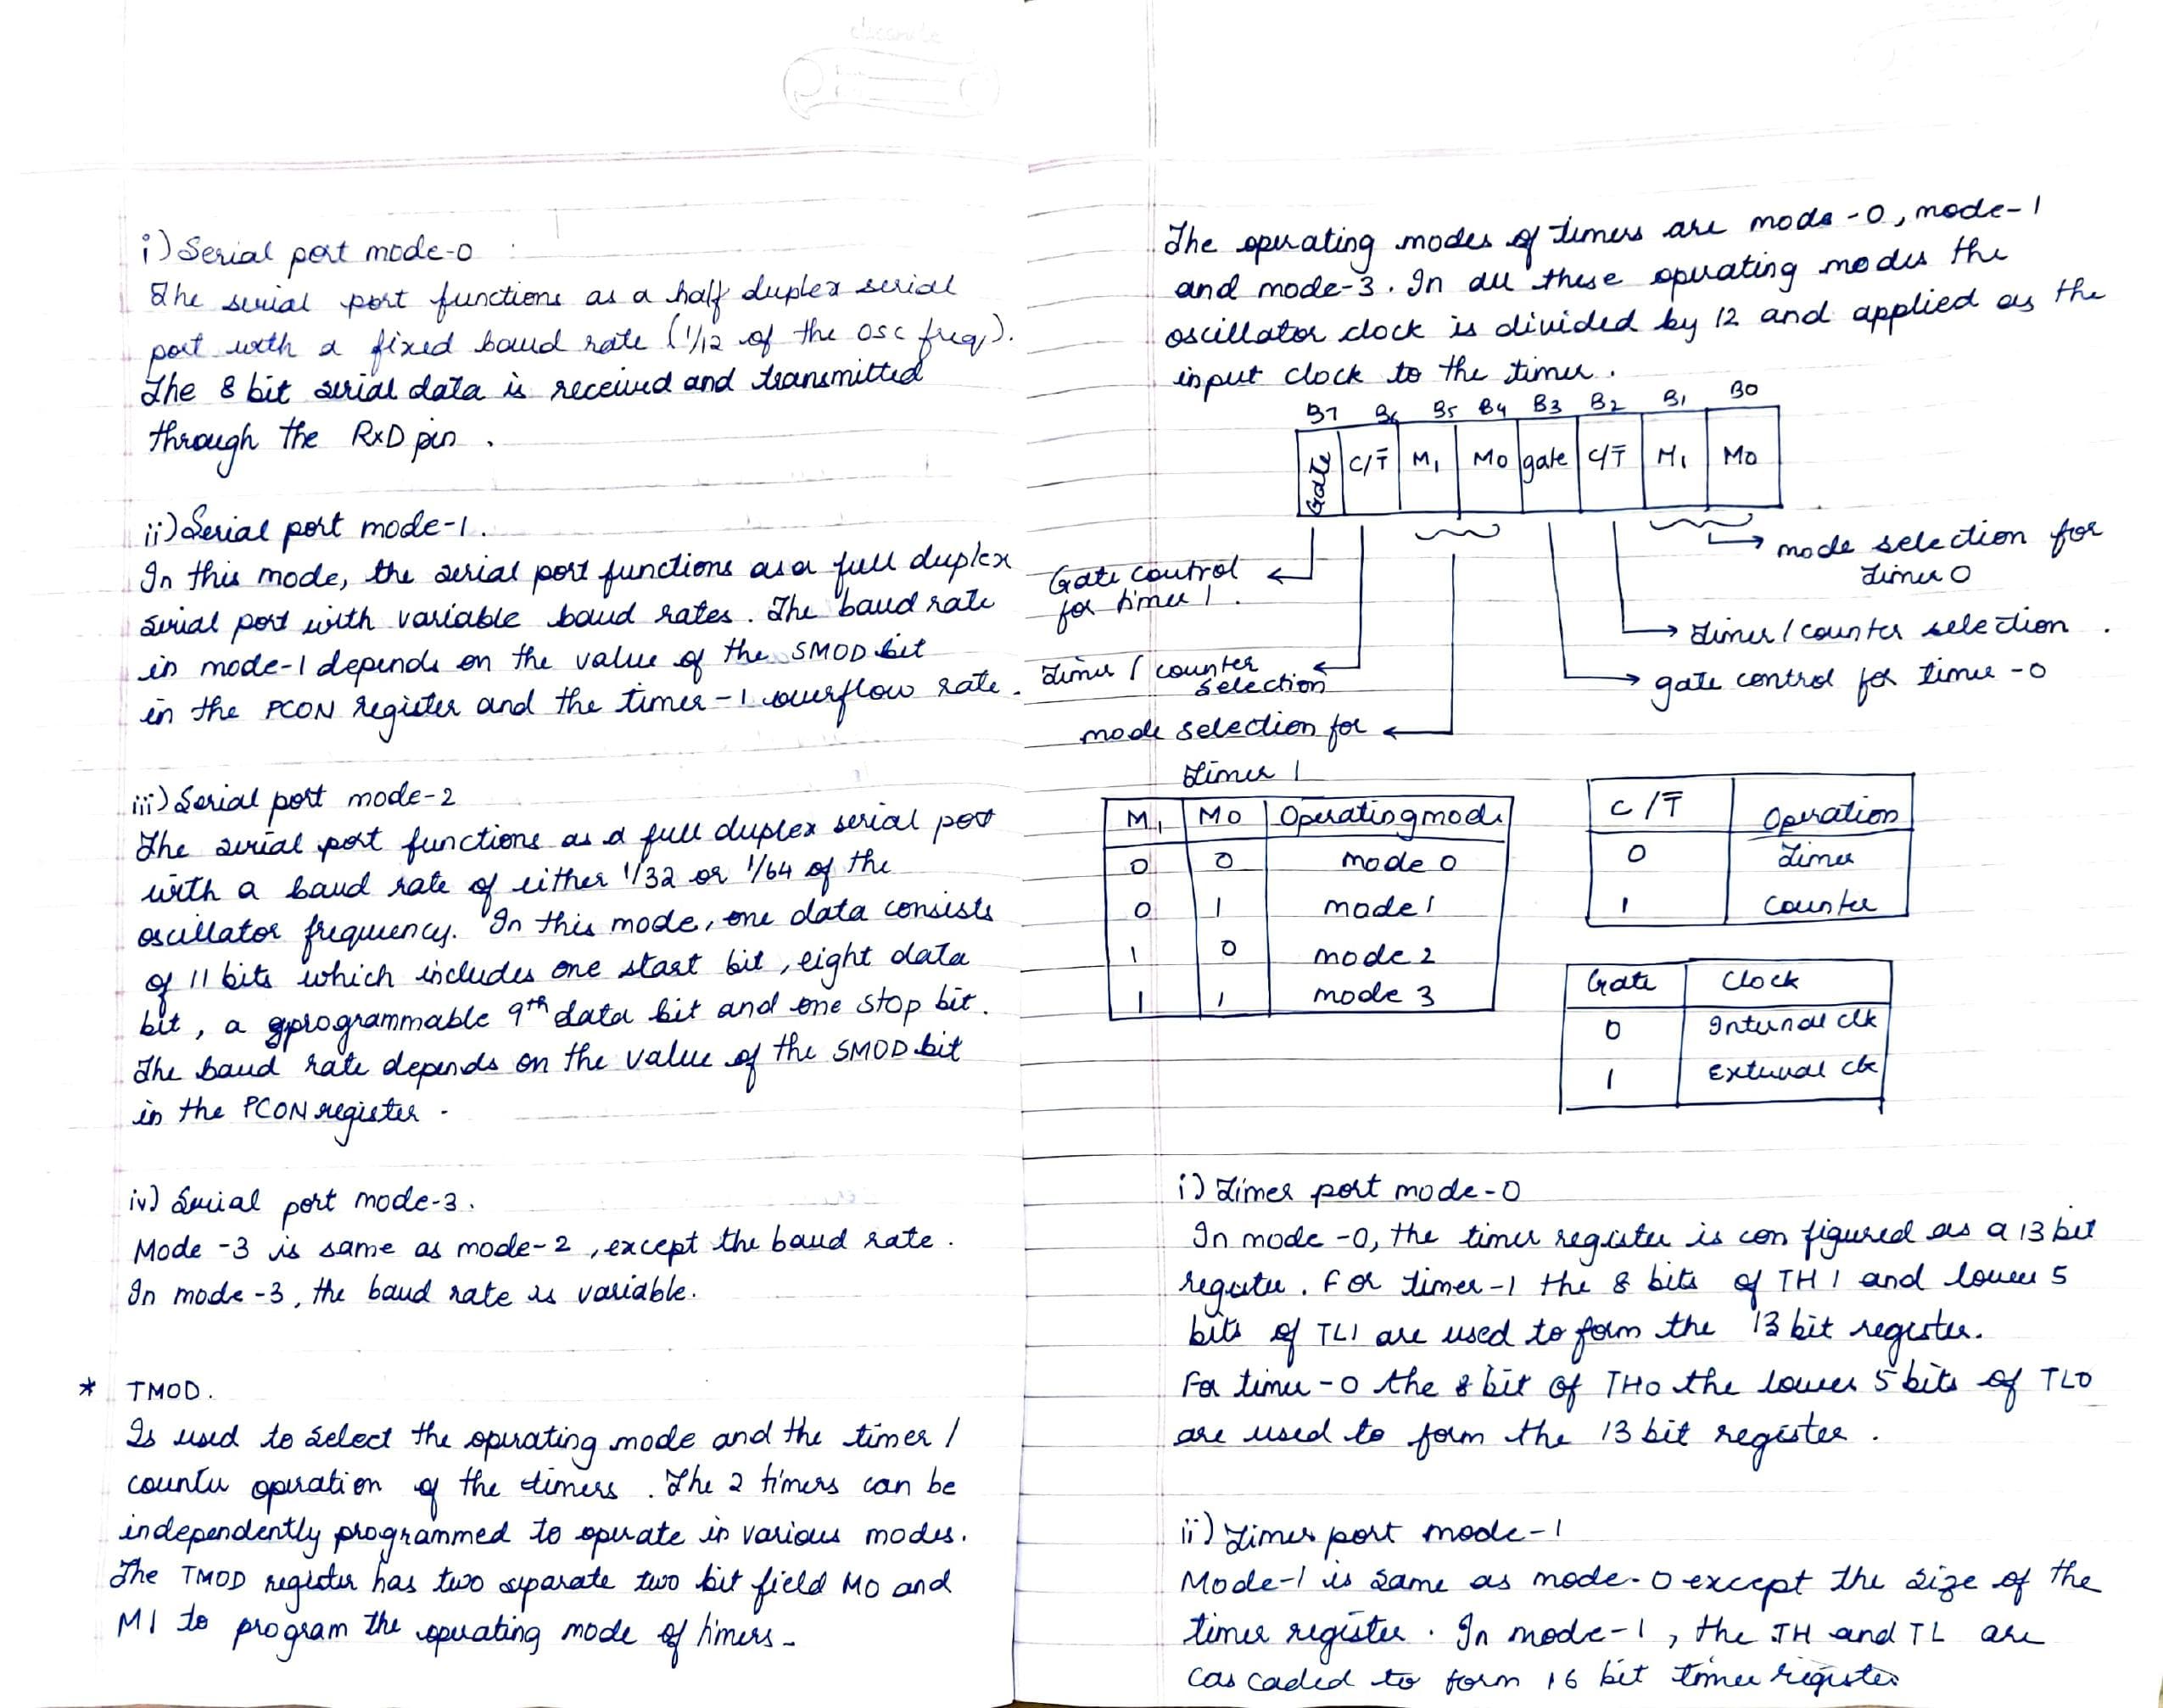 i) Serial port mode-0
The serial port functions as a half duplex serial
port with a fixed baud rate (1/12 of the osc freq).
The 8 bit serial data is received and transmitted
through the RxD pin .
ii) Serial port mode-1.
In this mode, the serial port functions as a full duplex
serial port with variable baud rates. The baud rate
in mode-1 depends on the value of the SMOD bit
in the PCON register and the timer -1 overflow rate.
iii) Serial port mode-2
The serial port functions as a full duplex serial port
with a baud rate of either 1/32 or 1/64 of the
oscillator frequency. In this mode, one data consists
of 11 bits which includes one start bit, eight data
bit, a programmable 9th data bit and one stop bit.
The baud rate depends on the value of the SMOD bit
in the PCON register -
iv) Serial port mode-3.
Mode -3 is same as mode-2, except the baud rate.
In mode-3, the baud rate is variable.
* TMOD.
Is used to select the operating mode and the timer /
counter operation of the timers. The 2 timers can be
independently programmed to operate in various modes.
The TMOD register has two separate two bit field M0 and
M1 to program the operating mode of timers -
The operating modes of timers are mode -0, mode-1
and mode-3. In all these operating modes the
oscillator clock is divided by 12 and applied as the
input clock to the timer.
B7 B6 B5 B4 B3 B2 B1 B0
Gate C/T̅ M1 M0 gate C/T̅ M1 M0
mode selection for
timer 0
Gate control
for timer 1.
timer / counter selection .
Timer / counter
selection
gate control for timer -0
mode selection for
timer 1
M1 M0 Operating mode
0 0 mode 0
0 1 mode 1
1 0 mode 2
1 1 mode 3
C/T̅ Operation
0 Timer
1 Counter
Gate Clock
0 Internal clk
1 External clk
i) Timer port mode-0
In mode -0, the timer register is configured as a 13 bit
register. For timer-1 the 8 bits of TH1 and lower 5
bits of TL1 are used to form the 13 bit register.
For timer-0 the 8 bit of TH0 the lower 5 bits of TL0
are used to form the 13 bit register .
ii) Timer port mode-1
Mode-1 is same as mode-0 except the size of the
timer register. In mode-1, the TH and TL are
cascaded to form 16 bit timer register